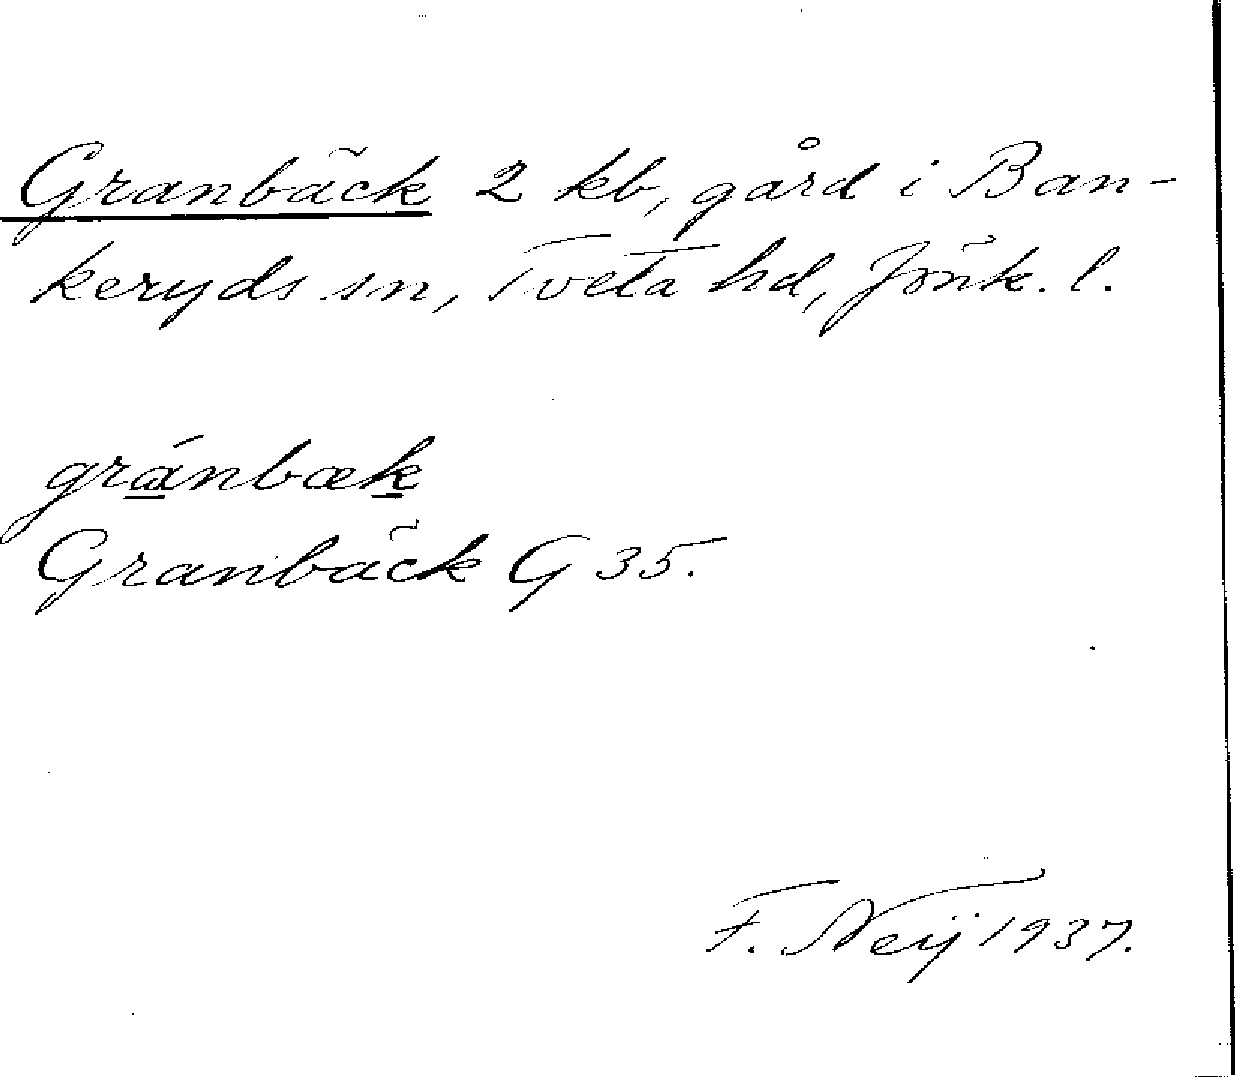 Granbäck 2 kb, gård i Ban-
keryds sn, Tveta hd, Jönk. l.
gránbæk
Granbäck G 35.
F. Neij 1937.